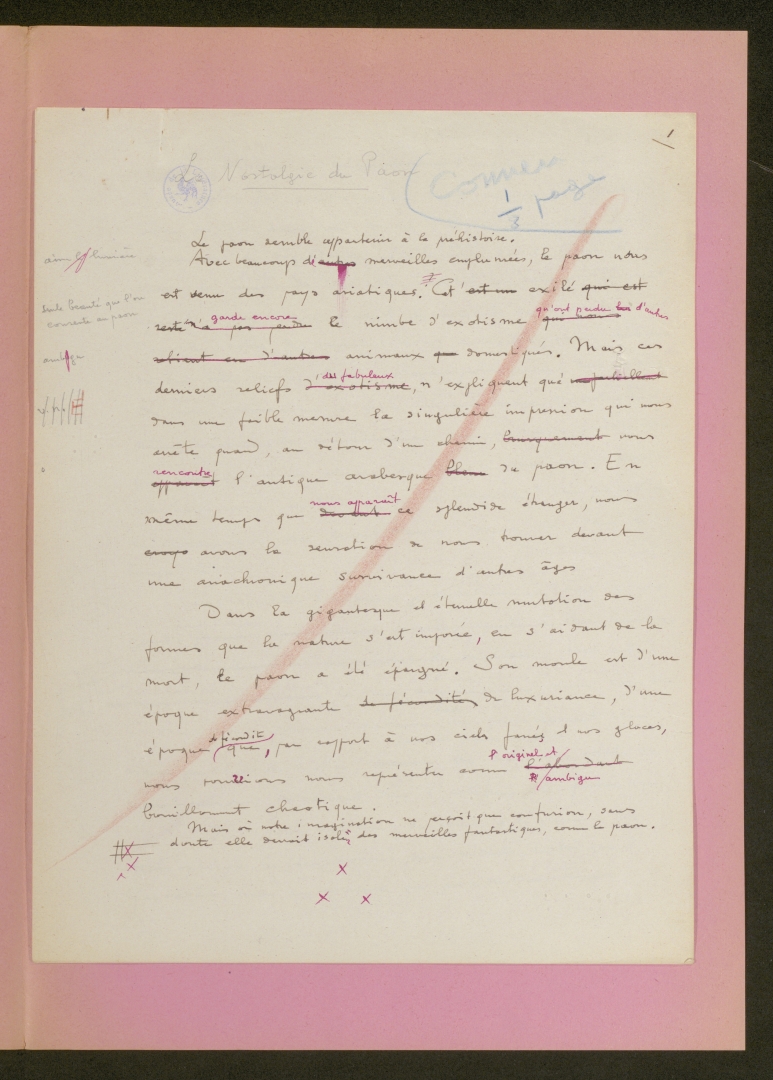 1
La Nostalgie du Paon
1/3 page
Le paon semble appartenir à la préhistoire.
Avec beaucoup d'autres merveilles emplumées, le paon nous
est venu des pays asiatiques. Cet est un exilé qui est
resté n'a pas perdu garde encore le nimbe d'exotisme qui nous qu'ont perdu d'autres
en d'autres animaux domestiqués. Mais ces
derniers reliefs d'exotisme des fabuleux, n'expliquent que
dans une faible mesure la singulière impression qui nous
arrête quand, au détour d'un chemin, brusquement nous
apparaît rencontre l'antique arabesque bleue du paon. En
même temps que devant nous apparaît ce splendide étranger, nous
avons la sensation de nous trouver devant
une anachronique survivance d'autres âges
Dans la gigantesque et éternelle mutation des
formes que la nature s'est imposée, en s'aidant de la
mort, le paon a été épargné. Son moule est d'une
époque extravagante de fécondité, de luxuriance, d'une
époque de fécondité que, par rapport à nos ciels fanés et nos glaces,
nous pourrions nous représenter comme l'abondant l'originel et ambigu
bouillonnant chaotique.
Mais où notre imagination ne perçoit que confusion, sans
doute elle devait isoler des merveilles fantastiques, comme le paon.
x
x x
lumière
beauté que l'on
ambigu